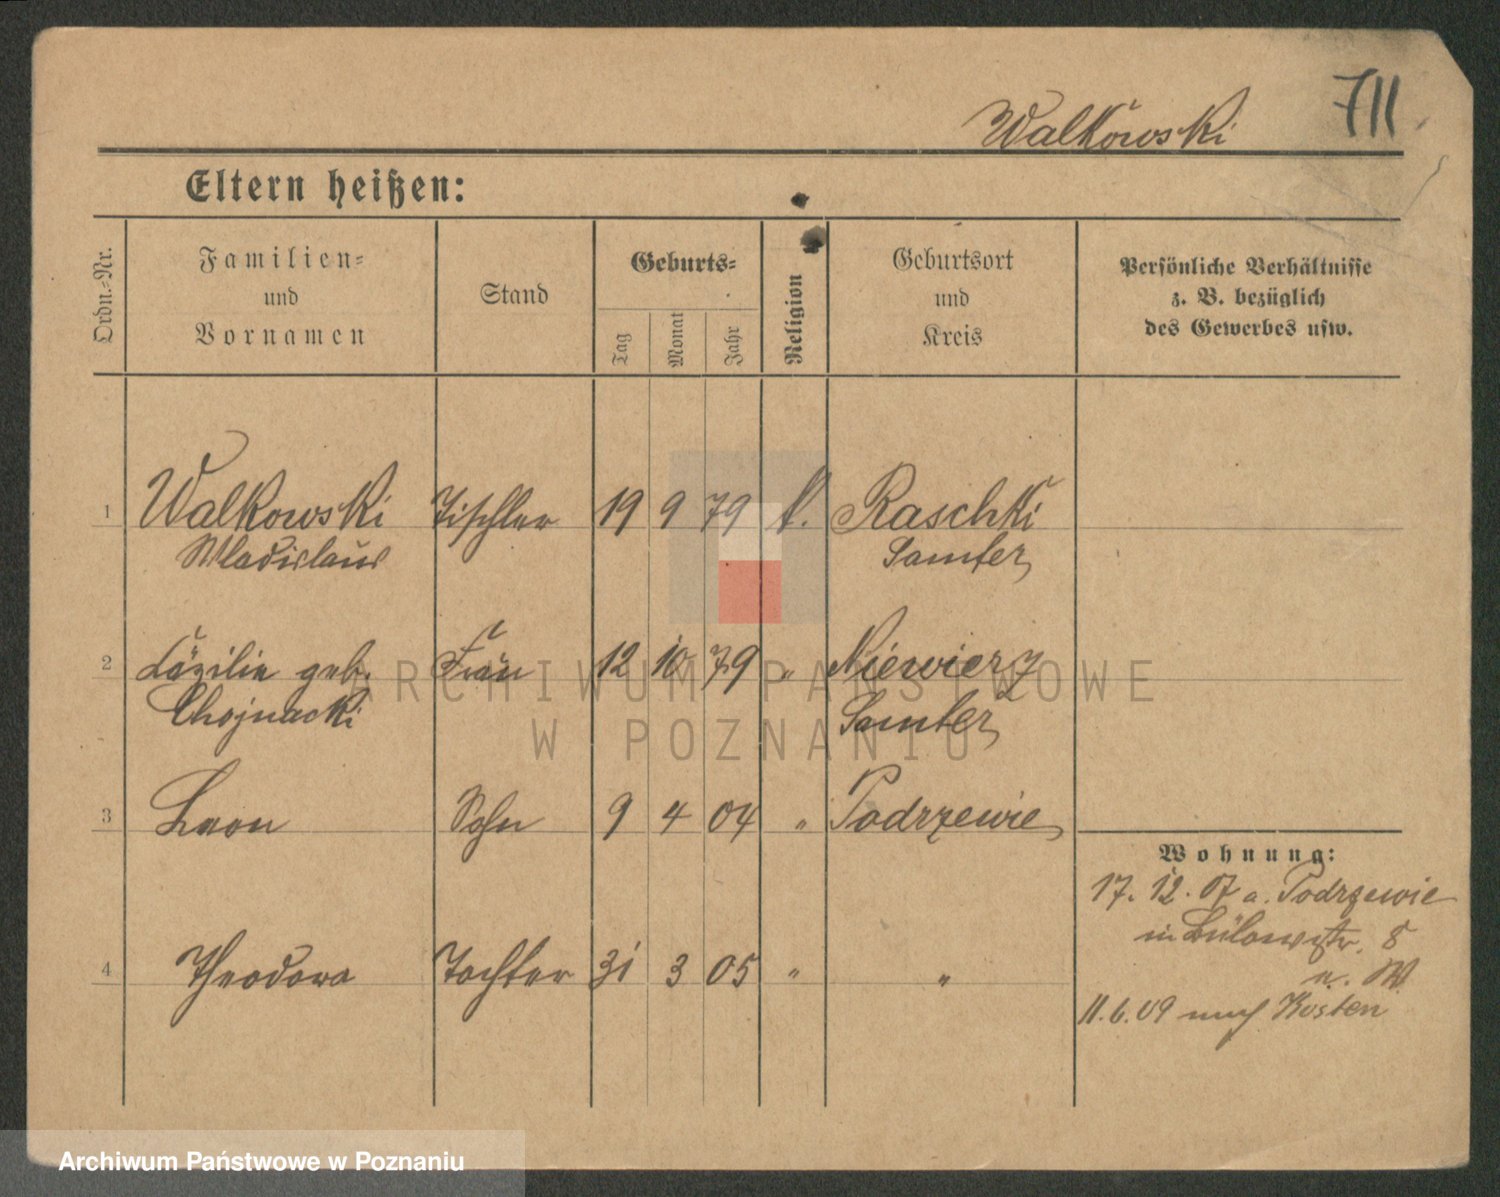 711
Walkowski
Eltern heißen:
Ordn.-Nr.
Familien-
und
Vornamen
Stand
Geburts-
Tag
Monat
Jahr
Religion
Geburtsort
und
Kreis
Persönliche Verhältnisse
z. B. bezüglich
des Gewerbes usw.
1 Walkowski Tischler 19 9 79 k. Raschki
Wladislaus Samter
2 Cäzilie geb. Frau 12 10 79 " Niewierz
Chojnacki Samter
3 Leon Sohn 9 4 04 " Podrzewie
4 Theodora Tochter 31 3 05 " "
Wohnung:
17. 12. 07 a. Podrzewie
in Bülowstr. 8
n. W.
11.6.09 nach Kosten
ARCHIWUM PAŃSTWOWE
W POZNANIU
Archiwum Państwowe w Poznaniu